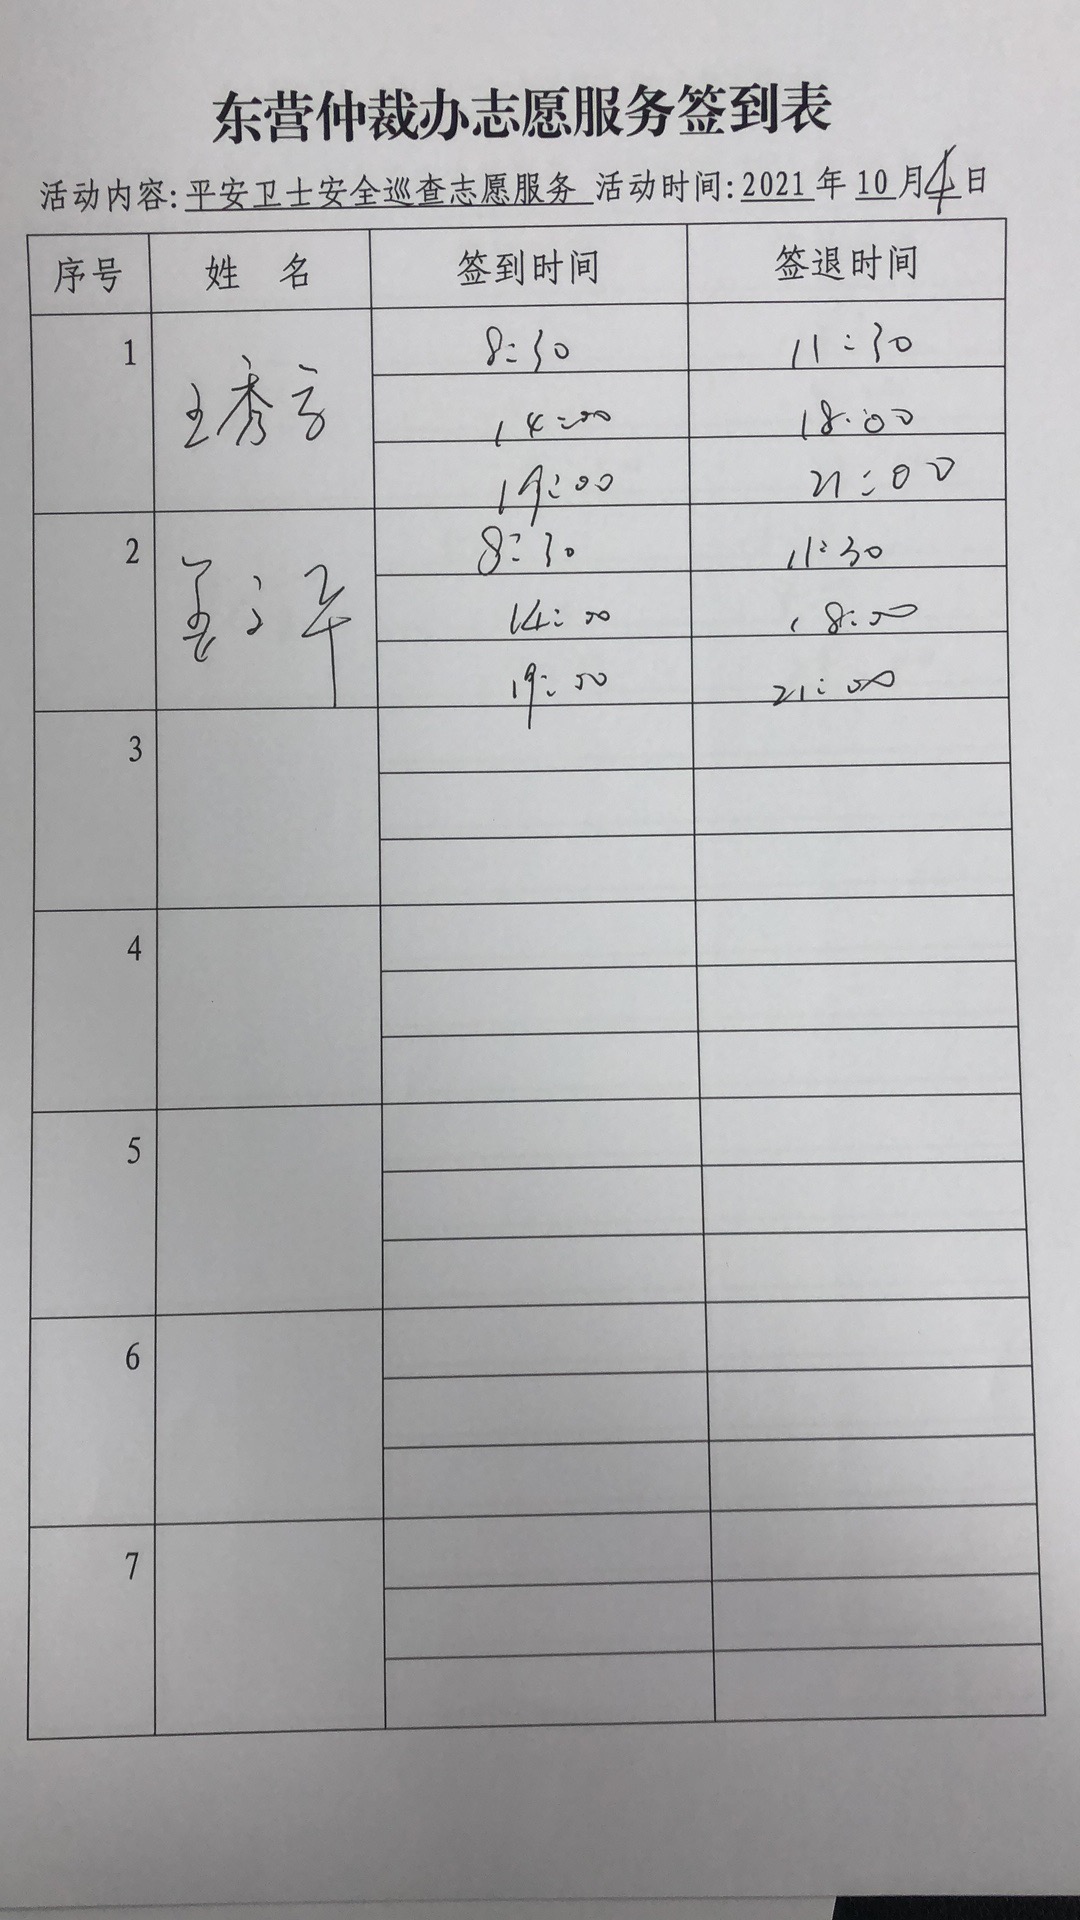 东营仲裁办志愿服务签到表
活动内容:平安卫士安全巡查志愿服务 活动时间:2021年10月4日
序号 姓 名 签到时间 签退时间
1 王秀 8:30 11:30
14:00 18:00
19:00 21:00
2 8:30 11:30
14:00 18:00
19:00 21:00
3
4
5
6
7